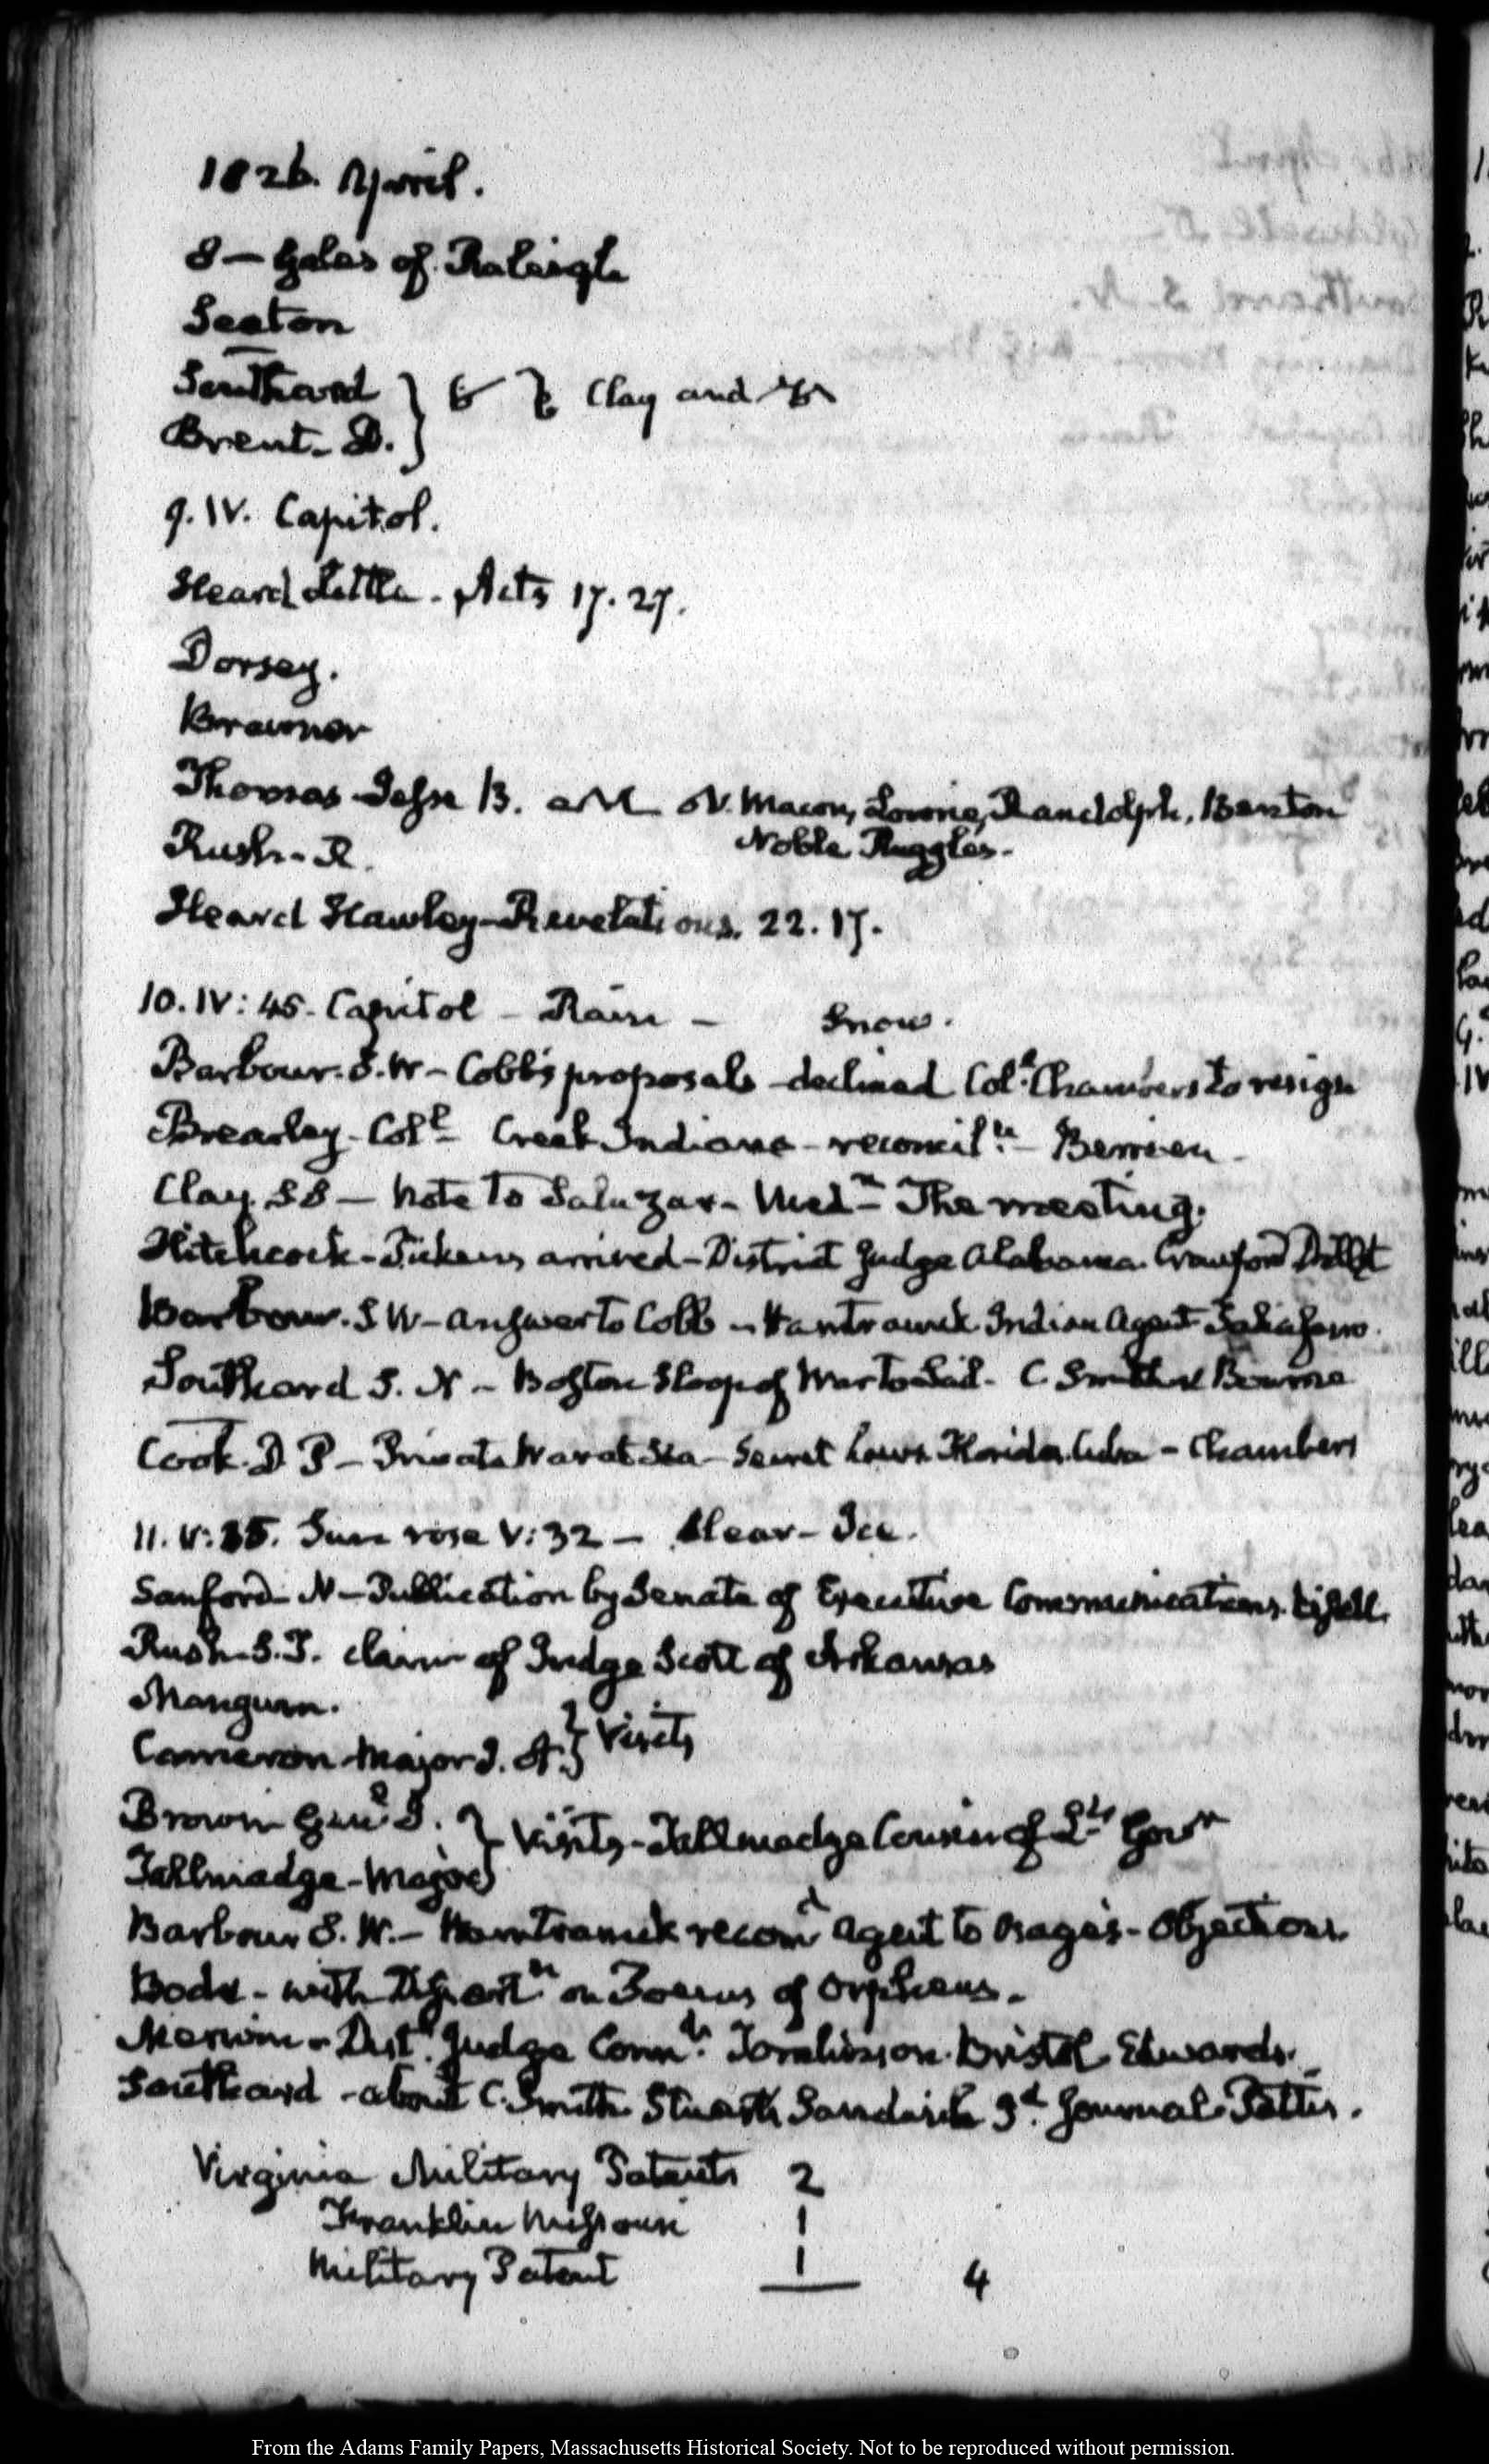 1826. April.
8 — Gales of Raleigh
Seaton
Southard
Brent. D. } Clay and
9. IV. Capitol.
Heard Little. Acts 17. 27.
Dorsey.
Brawner
Thomas Jesse B. N. Macon, Randolph, Benton
Noble Ruggles.
Rush. R.
Heard Hawley Revelations. 22. 17.
10. IV: 45. Capitol — Rain — Snow.
Barbour. S. W — Cobb's proposals — declined Col.l Chambers to resign
Brearley Col.l Creek Indians — reconcil.n — Berrien
Clay. SS — Note to Salazar. Med.n The meeting.
Hitchcock — Pickens arrived — District Judge Alabama. Crawford
Barbour. S W — Answer to Cobb — Hamtramck Indian Agent
Southard S. N — Boston Sloop of War to Sail. C. Smith & Bourne
Cook. D P — Private War at Sea — Secret Laws. Florida. Cuba — Chambers
11. V: 35. Sun rose V: 32 — Clear — Ice.
Sanford N — Publication by Senate of Executive Communications.
Rush S. T. claim of Judge Scott of Arkansas
Mangum.
Cameron Major J. A. } Visits
Brown Gen.l J.
Tallmadge Major } Visits — Tallmadge Cousin of Lt. Govr
Barbour S. W. — Hamtramck recomd Agent to Osages — Objections.
Bode — with Dissert.n on Poems of Orpheus.
Merwin — Dist.t Judge Conn.t Tomlinson. Bristol. Edwards.
Southard — about C. Smith. Stewart's 3.d Journal.
Virginia Military Patents 2
Franklin Missouri 1
Military Patent 1 4
From the Adams Family Papers, Massachusetts Historical Society. Not to be reproduced without permission.